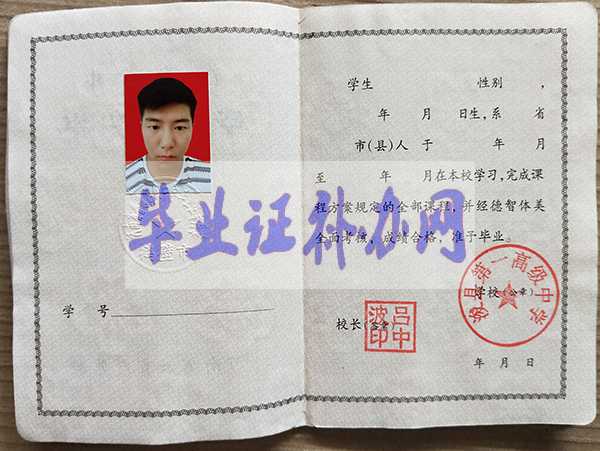 学 号
学生 性别 ，
年 月 日生，系 省
市(县)人 于 年 月
至 年 月在本校学习，完成课
程方案规定的全部课程，并经德智体美
全面考核，成绩合格，准予毕业。
毕业证补办网
学校(公章)
县第一高级中学
校长(签章)
吕中波印
年 月 日